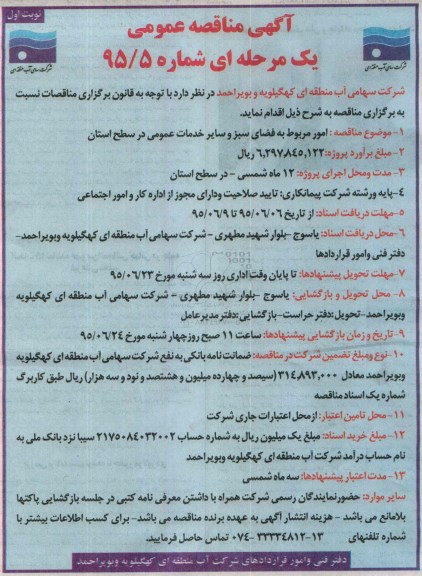 نوبت اول
آگهی مناقصه عمومی
یک مرحله ای شماره ۹۵/۵
شرکت سهامی آب منطقه ای
شرکت سهامی آب منطقه ای
شرکت سهامی آب منطقه ای کهگیلویه و بویراحمد در نظر دارد با توجه به قانون برگزاری مناقصات نسبت
به برگزاری مناقصه به شرح ذیل اقدام نماید.
۱- موضوع مناقصه : امور مربوط به فضای سبز و سایر خدمات عمومی در سطح استان
۲-مبلغ برآورد پروژه: ۶,۲۹۷,۸۴۵,۱۲۲ ریال
۳- مدت ومحل اجرای پروژه: ۱۲ ماه شمسی - در سطح استان
۴-پایه ورشته شرکت پیمانکاری: تایید صلاحیت ودارای مجوز از اداره کار و امور اجتماعی
۵-مهلت دریافت اسناد: از تاریخ ۹۵/۰۶/۰۶ تا ۹۵/۰۶/۹
۶-محل دریافت اسناد: یاسوج -بلوار شهید مطهری - شرکت سهامی آب منطقه ای کهگیلویه وبویراحمد-
دفتر فنی وامور قراردادها
۷- مهلت تحویل پیشنهادها: تا پایان وقت اداری روز سه شنبه مورخ ۹۵/۰۶/۲۳
۸- محل تحویل و بازگشایی: یاسوج -بلوار شهید مطهری - شرکت سهامی آب منطقه ای کهگیلویه
وبویراحمد-تحویل:دفتر حراست-بازگشایی:دفتر مدیر عامل
۹- تاریخ و زمان بازگشایی پیشنهادها: ساعت ۱۱ صبح روز چهار شنبه مورخ ۹۵/۰۶/۲۴
۱۰-نوع ومبلغ تضمین شرکت در مناقصه: ضمانت نامه بانکی به نفع شرکت سهامی آب منطقه ای کهگیلویه
وبویراحمد معادل ۳۱۴,۸۹۳,۰۰۰ (سیصد و چهارده میلیون و هشتصد و نود و سه هزار) ریال طبق کاربرگ
شماره یک اسناد مناقصه
۱۱- محل تامین اعتبار: از محل اعتبارات جاری شرکت
۱۲- مبلغ خرید اسناد: مبلغ یک میلیون ریال به شماره حساب ۲۱۷۵۰۸۴۰۳۲۰۰۲ سیبا نزد بانک ملی به
نام حساب درآمد شرکت آب منطقه ای کهگیلویه وبویراحمد
۱۳- مدت اعتبار پیشنهادها: سه ماه شمسی
سایر موارد: حضور نمایندگان رسمی شرکت همراه با داشتن معرفی نامه کتبی در جلسه بازگشایی پاکتها
بلامانع می باشد - هزینه انتشار آگهی به عهده برنده مناقصه می باشد- برای کسب اطلاعات بیشتر با
شماره تلفنهای ۱۳-۳۳۳۳۴۸۱۲-۰۷۴ تماس حاصل فرمایید.
دفتر فنی وامور قراردادهای شرکت آب منطقه ای کهگیلویه وبویراحمد